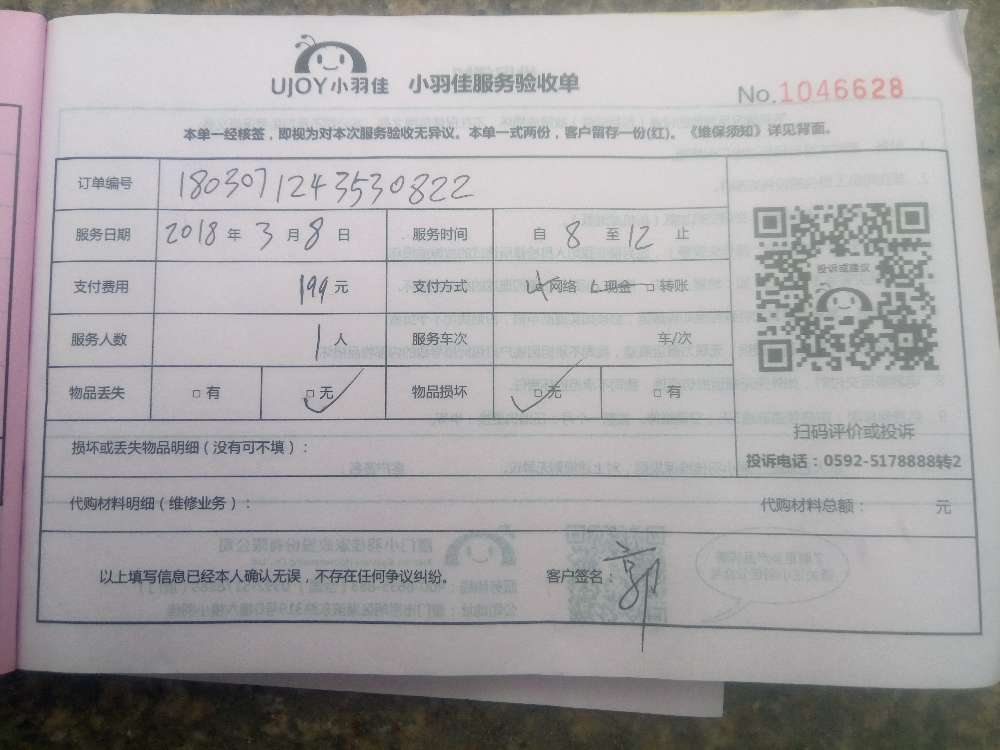 UJOY小羽佳 小羽佳服务验收单
No.1046628
本单一经核签，即视为对本次服务验收无异议。本单一式两份，客户留存一份(红)。《维保须知》详见背面。
订单编号 180307124353​0822
服务日期 2018 年 3 月 8 日 服务时间 自 8 至 12 止
投诉或建议
支付费用 199 元 支付方式 □网络 □现金 □转账
服务人数 1 人 服务车次 车/次
物品丢失 □有 □无 物品损坏 □无 □有
扫码评价或投诉
损坏或丢失物品明细（没有可不填）：
投诉电话：0592-5178888转2
代购材料明细（维修业务）： 代购材料总额： 元
以上填写信息已经本人确认无误，不存在任何争议纠纷。 客户签名：郭